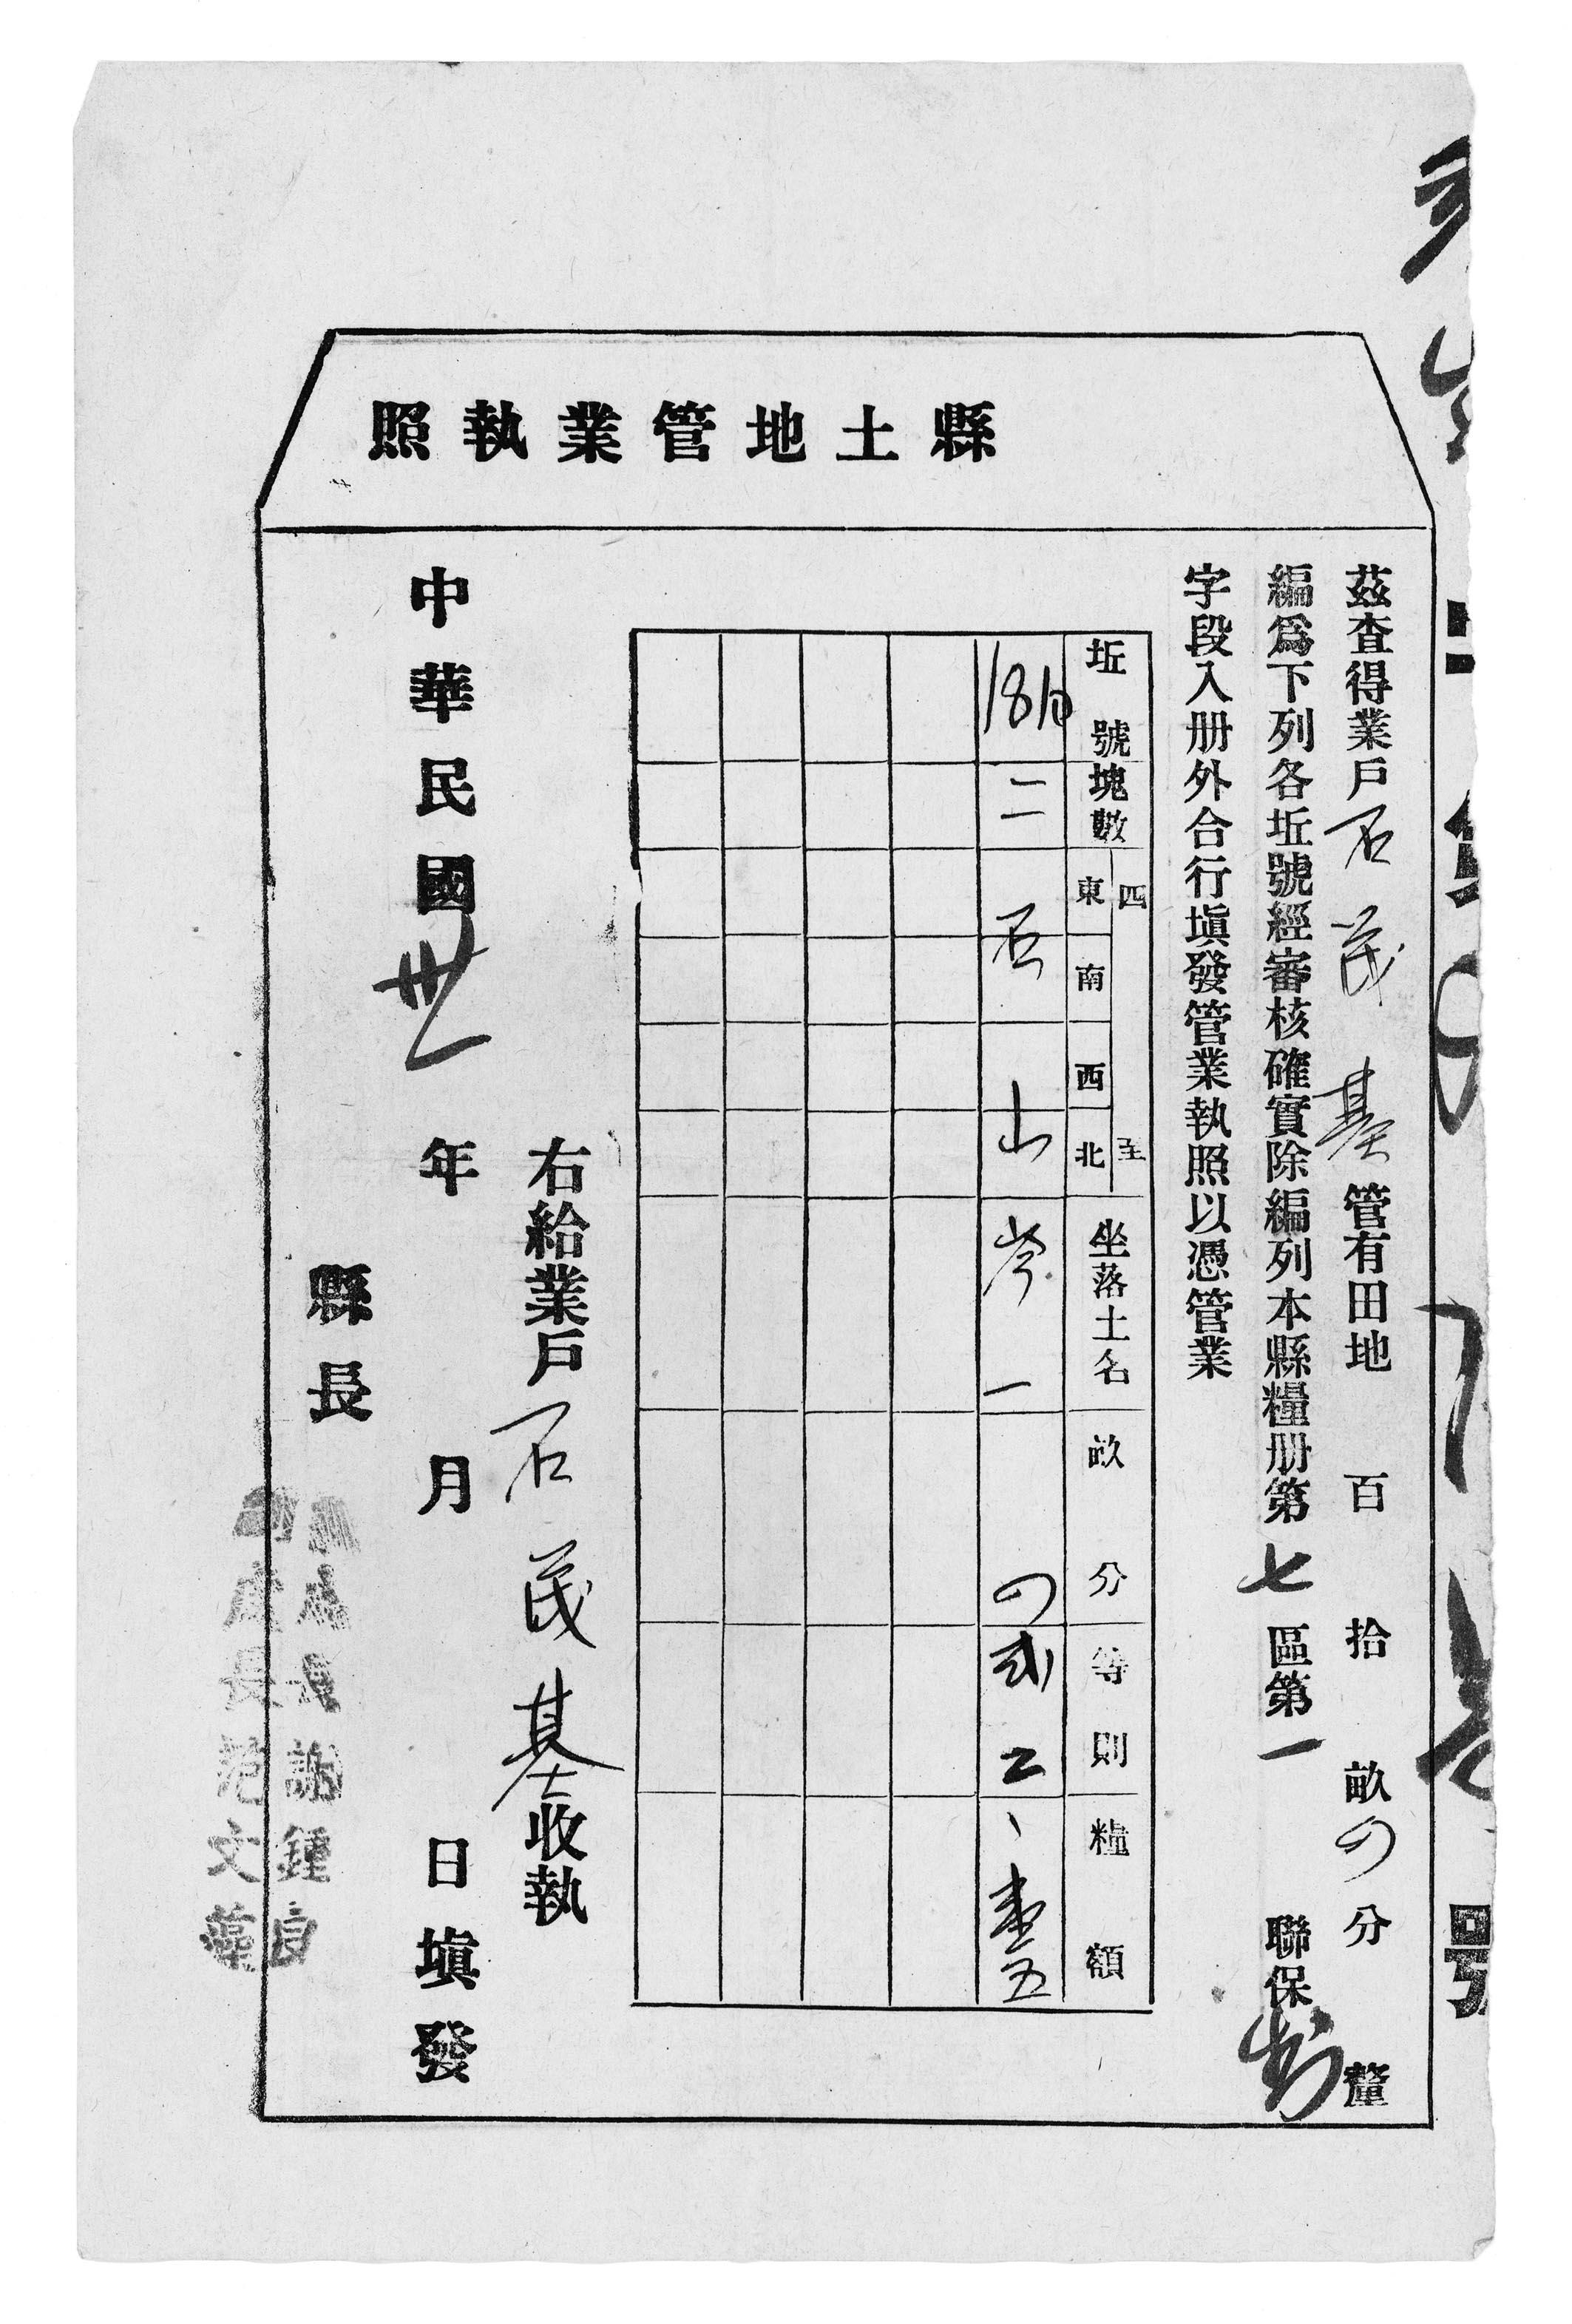 縣土地管業執照
茲查得業戶石茂基管有田地 百 拾 畝四分 釐
編爲下列各坵號經審核確實除編列本縣糧册第七區第一 聯保
字段入册外合行塡發管業執照以憑管業
坵號 塊數 四至 東 南 西 北 坐落土名 畝 分 等則 糧額
二 石 山 岑一 四 弍 二 、壹五
右給業戶石茂基收執
中華民國卅 年 月 日塡發
縣長
謝鍾
處長范文藻
號